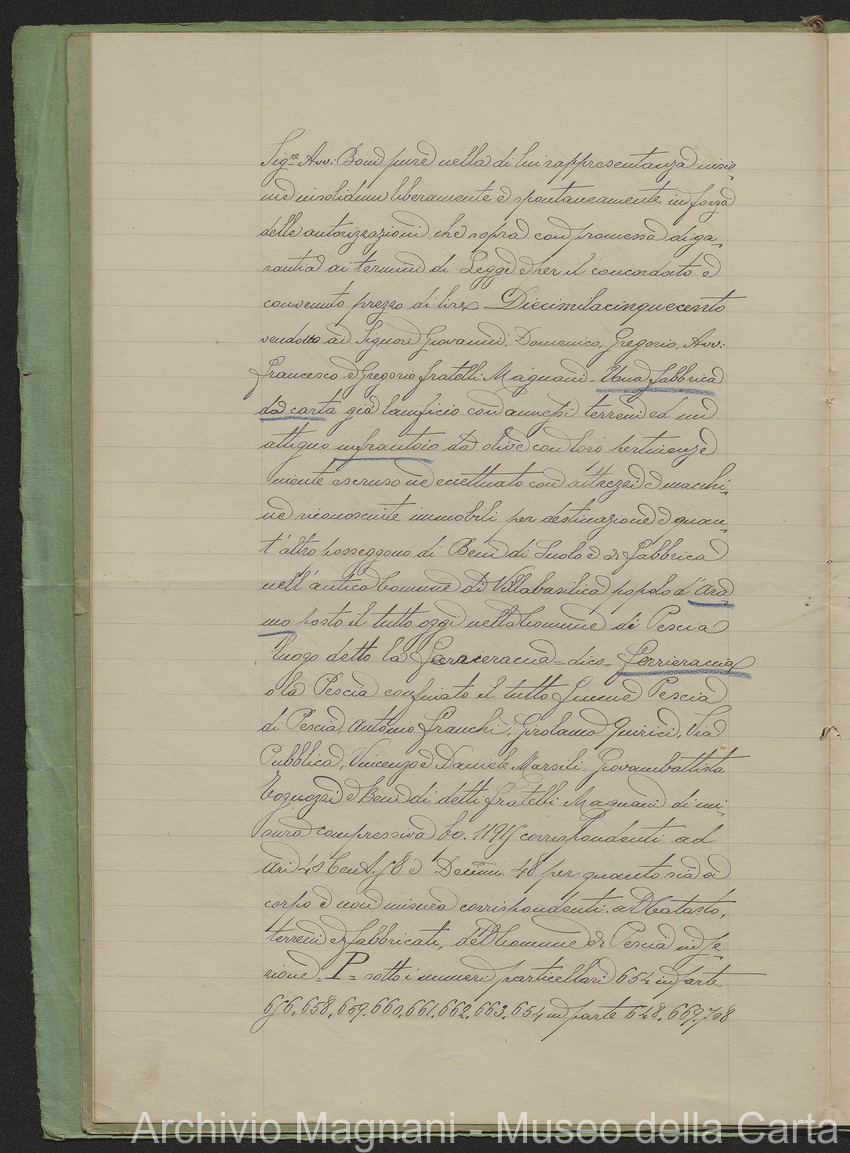 Sig.re Avv: Boni pure nella di lui rappresentanza insie-
me in solidum liberamente e spontaneamente in forza
delle autorizzazioni che sopra con promessa di ga-
ranzia ai termini di Legge e per il concordato e
convenuto prezzo di lire Diecimilacinquecento
vendono ai Signori Giovanni, Domenico, Gregorio, Avv:
Francesco e Gregorio fratelli Magnani - Una fabbrica
da carta già lanificio con annessi terreni ed un
attiguo infrantoio da olive con loro pertinenze
niente escluso ne eccettuato con attrezzi e macchi-
ne riconosciute immobili per destinazione e quan-
t'altro posseggono di Beni di Suolo e di fabbrica
nell'antica Comune di Villabasilica popolo d'Ara
mo posto il tutto oggi nella Comune di Pescia
luogo detto la = dico = Ferrieraccia
o la Pescia confinato il tutto Fiume Pescia
di Pescia, Antonio Franchi, Girolamo Quirici, Via
Pubblica, Vincenzo e Daniele Marsili Giovambattista
e Beni di detti fratelli Magnani di mi-
sura compressiva corrispondenti ad
Ari 40 Cent. e Decim. 48 per quanto sia a
corpo e non misura corrispondenti al Catasto,
terreni e fabbricati, della Comune di Pescia in Se-
zione = P = sotto i numeri particellari 654 in parte
656, 658, 659, 660, 661, 662, 663, 654 in parte 648, 669, 708
Archivio Magnani - Museo della Carta